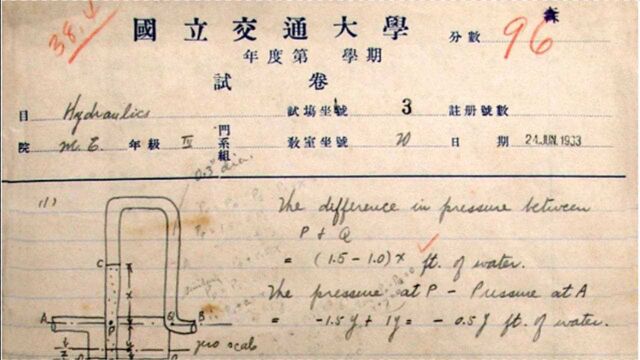 38.4
國立交通大學
年度第 學期
試卷
分數 96
目 Hydraulics 試場坐號 3 註册號數
院 M.E. 年級 IV 門系組 教室坐號 20 日期 24 JUN 1933
0.3" dia.
(1)
The difference in pressure between
P & Q
= (1.5 - 1.0) x ft. of water.
The pressure at P - Pressure at A
= -1.5y + 1y = - 0.5y ft. of water.
C
x
A
P
Q
B
y
z
zero scale